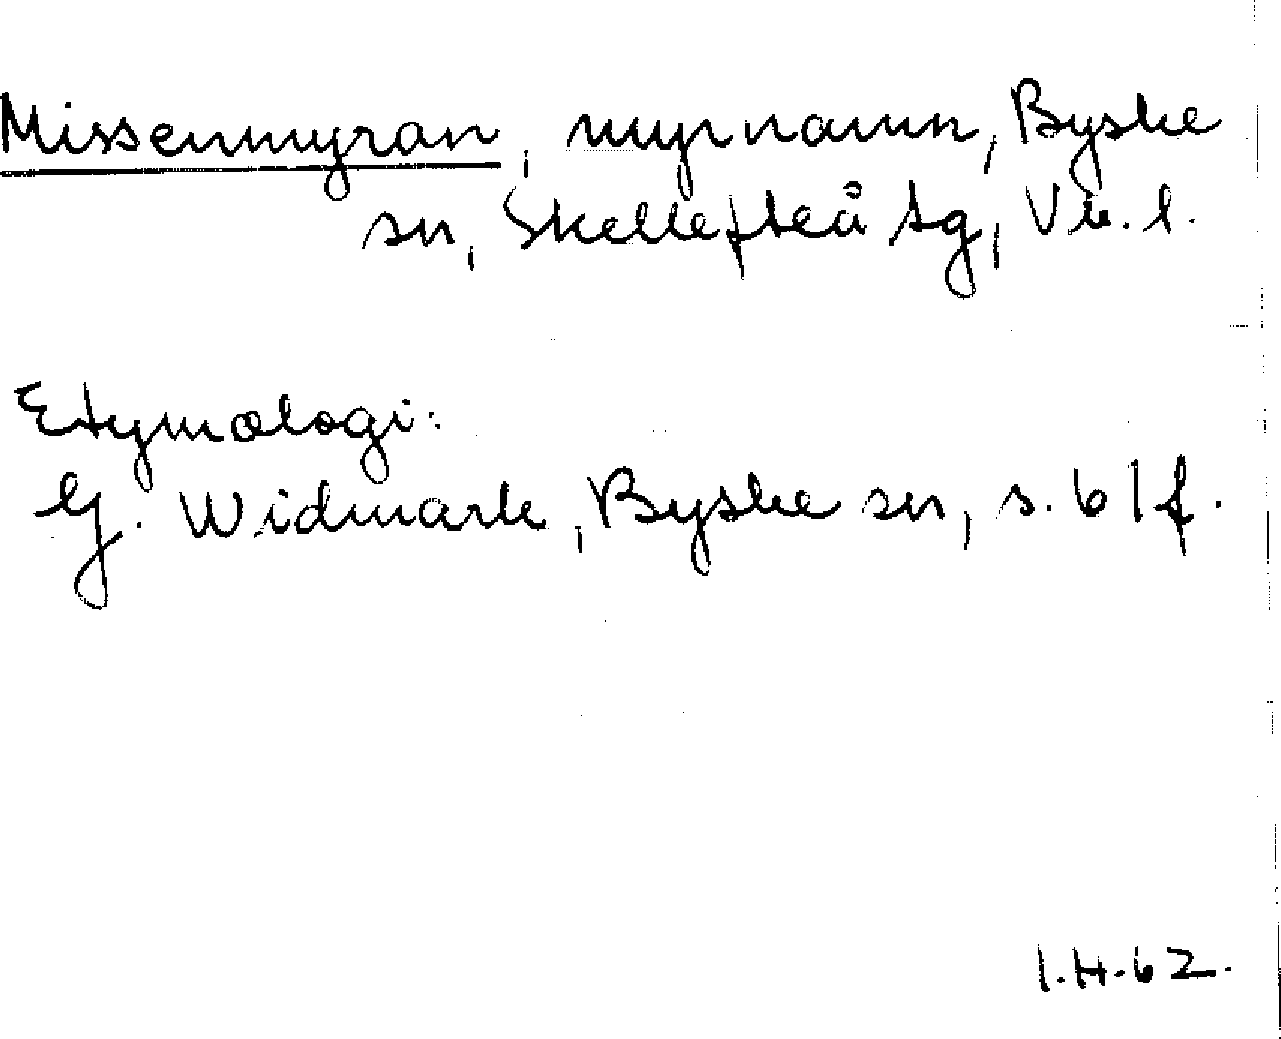 Missenmyran, myrnamn, Byske
sn, Skellefteå tg, Vb. l.
Etymologi:
G. Widmark, Byske sn, s. 61 f.
I.H.62.